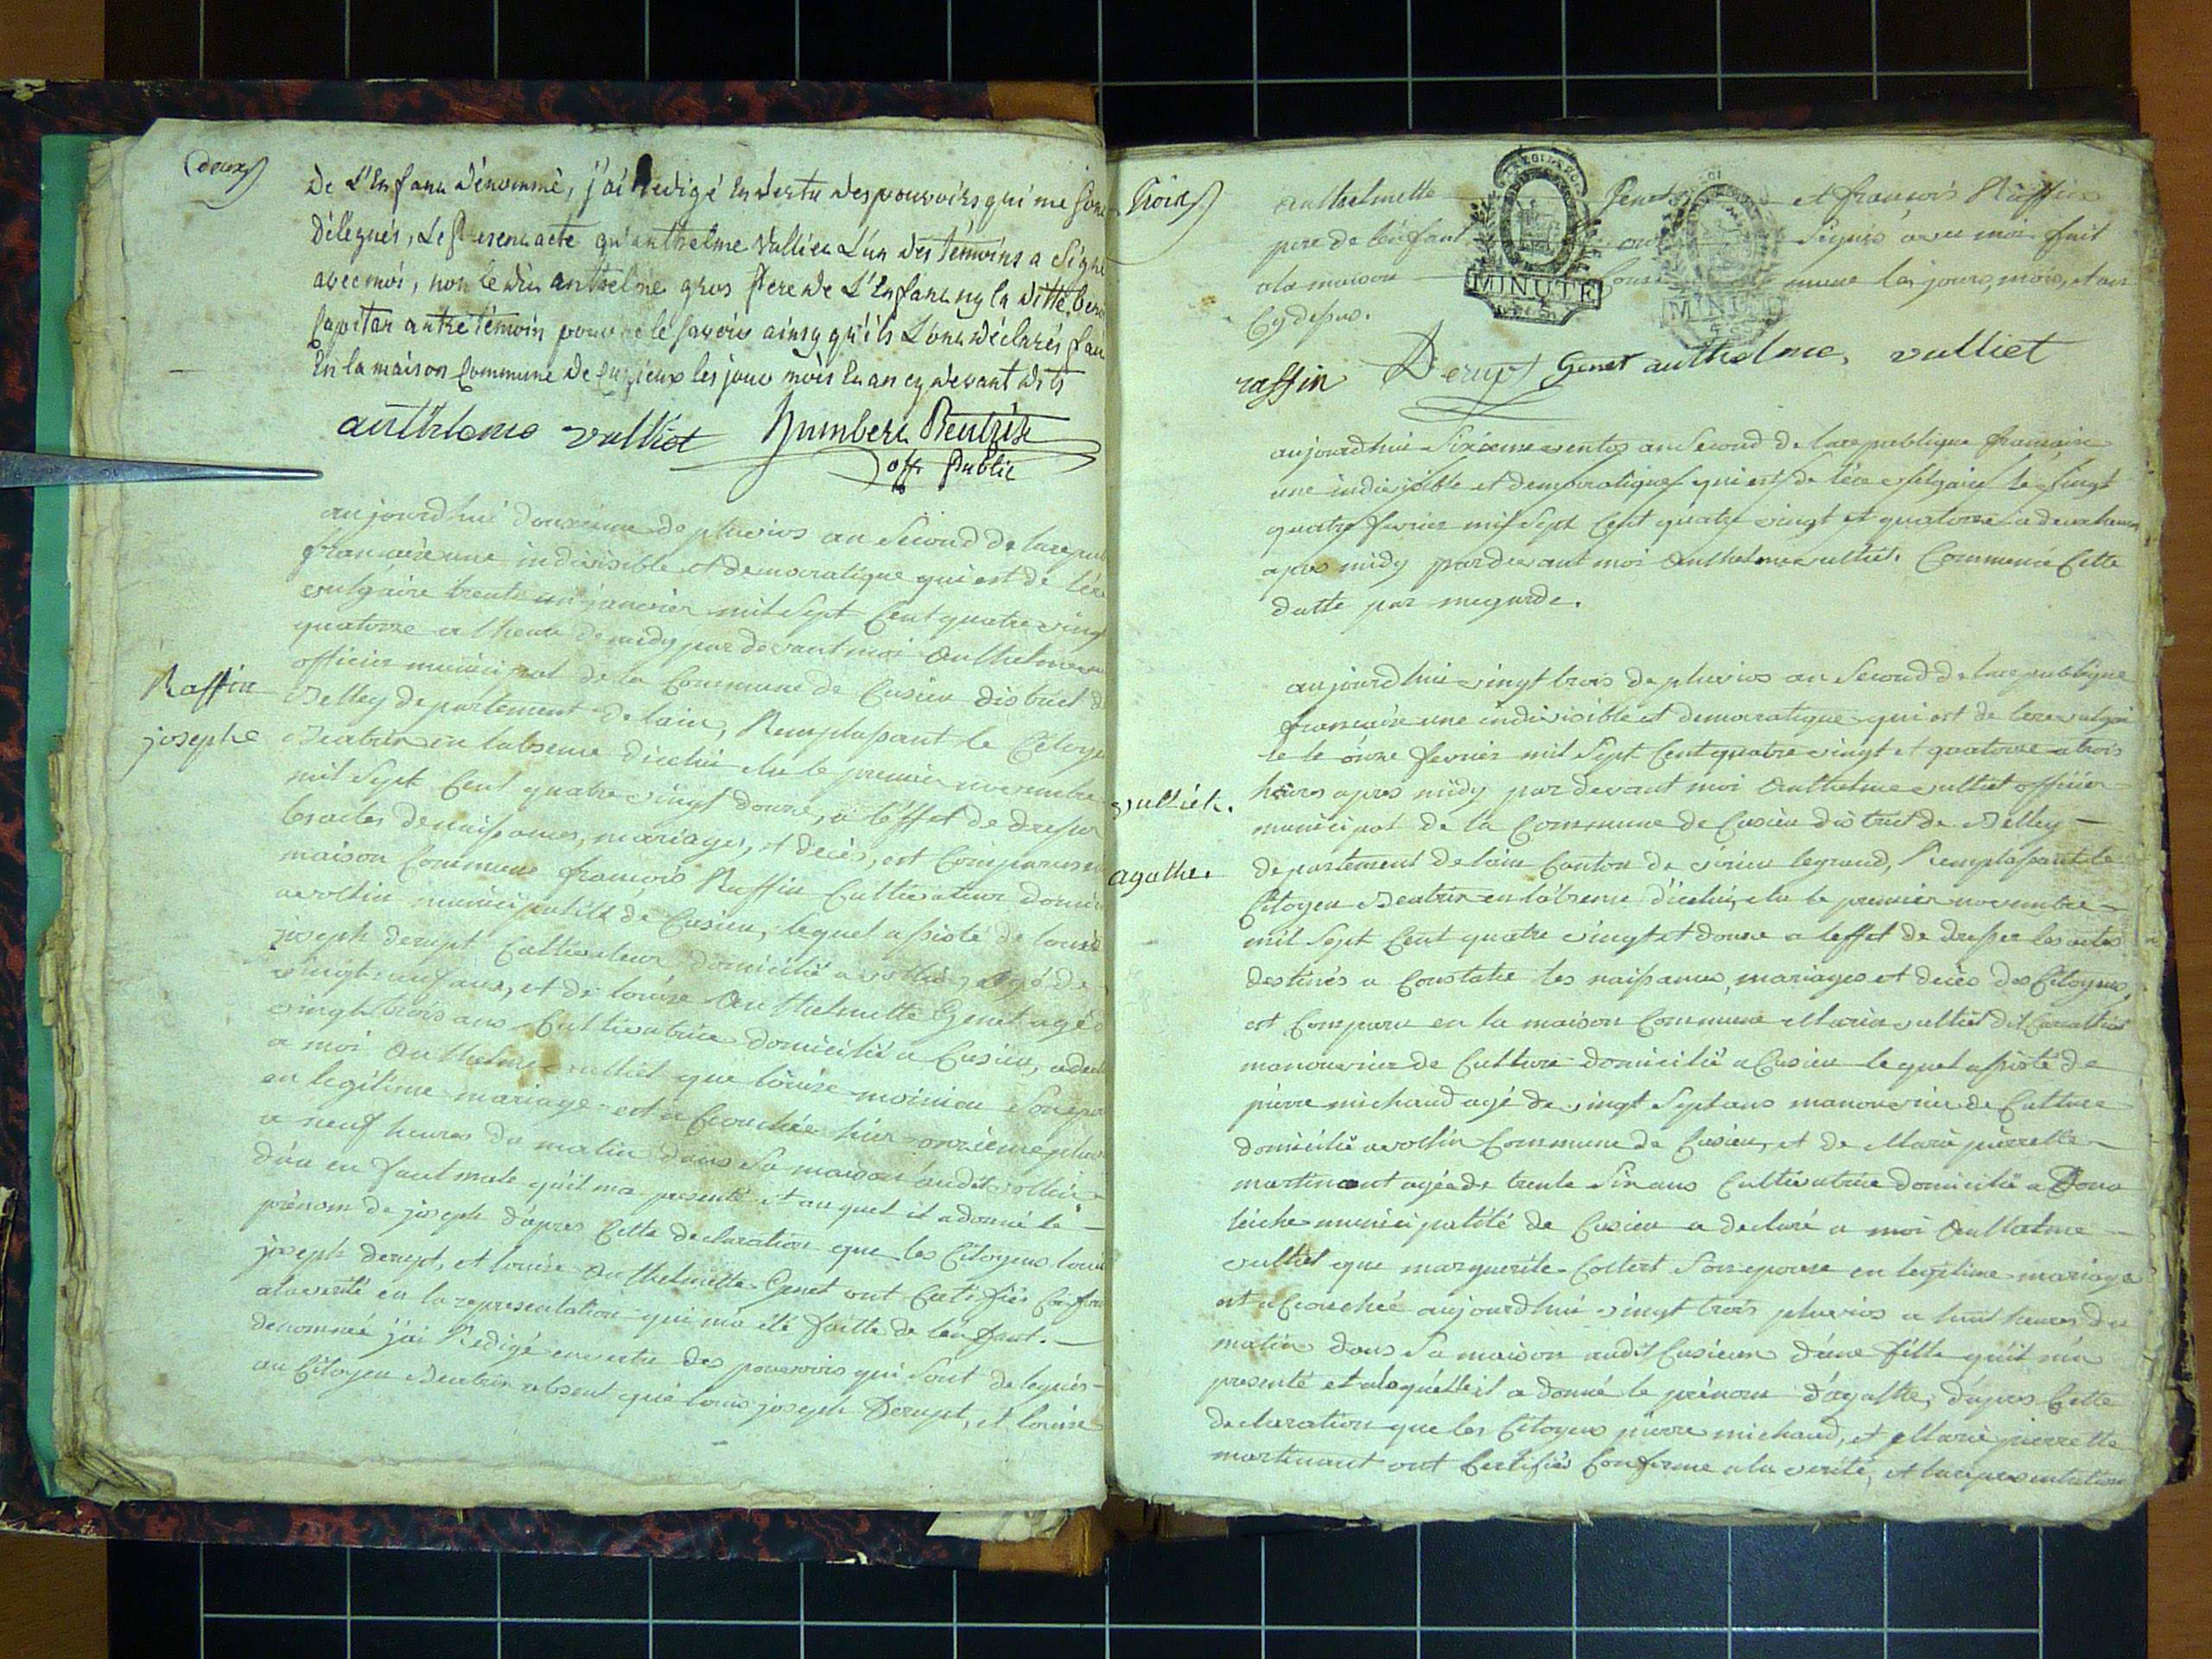 (deux)
De L'Enfant dénommé, j'ai Redigé En Vertu Des pouvoirs qui me sont
Délégués, Le Present acte qu'anthelme Vulliet L'un Des témoins a Signé
avec moi, non le dit anthelme gros Pere De L'Enfant ny la ditte
autre témoin pour ne le savoir ainsy qu'ils L'ont Déclarés fait
En la maison Commune De Cuzieux les jour mois En an cy devant dits
anthelme vulliet Humbert Beatrix
off. Public
Raffin
joseph
aujourdhui douzieme de pluvios an Second de la repub
francaise une indivisible et democratique qui est de lére
vulgaire trente un janvier mil Sept Cent quatre vingt
quatorze a lheure de midy par devant moi Anthelme
officier municipal de la Commune de Cusieu district de
Belley departement de lain, Remplassant le Citoye
Beatrix en labsence dicelui elu le premier novembre
mil Sept Cent quatre vingt douze, a l'éffet de dresser
les actes de naissances, mariages, et decès, est Comparu en
maison Commune françois Raffin Cultivateur domi
a vollin municipalité de Cusieu, lequel assisté de louis
joseph derupt Cultivateur domicilié a vollin agé de
vingt neuf ans, et de louise Anthelmette Genet agée
vingt trois ans Cultivatrice domicilié a Cusieu, a decl
a moi Anthelme vulliet que louise Son epou
en legitime mariage est accouchée hier onzieme pluv
a neuf heures du matin dans Sa maison audit vollin
d'un enfant male qu'il ma presenté et auquel il a donné le
prénom de joseph d'apres Cette declaration que les Citoyens louis
joseph derupt, et louise Anthelmette Genet ont Certifiés Confor
a la verité en la representation qui m'a été faitte de lenfant.
denommé j'ai Redigé en vertu des pouvoirs qui Sont delegués
au Citoyen Beatrix absent que louis joseph Derupt, et louise
trois)
anthelmette Genet et françois Raffin
pere de lénfant ont Signés avec moi fait
a la maison Comm mune les jours, mois, et an
Cy dessus.
MINUTE MINUTE
raffin Derupt Genet anthelme, vulliet
aujourdhui Sixieme ventos an Second de la republique francaise
une indivisible et democratique qui est de lére vulgaire le vingt
quatre fevrier mil Sept Cent quatre vingt et quatorze a deux heures
apres midy pardevant moi Anthelme vulliet. Commencé Cette
datte par megarde.
vulliet.
agathe.
aujourdhui vingt trois de pluvios an Second de la republique
francaise une indivisible et democratique qui est de lere vulgai
re le onze fevrier mil Sept Cent quatre vingt et quatorze a trois
heures apres midy par devant moi Anthelme vulliet officier
municipal de la Commune de Cusieu district de Belley
departement de lain Canton de virieu legrand, Remplassant le
Citoyen Beatrix en l'absence d'icelui, elu le premier novembre
mil Sept Cent quatre vingt et douze a leffet de dresser les actes
destinés a Constater les naissances, mariages et decès des Citoyens,
est Comparu en la maison Commune Marin vulliet dit
manouvrier de Culture domicilié a Cusieu lequel assisté de
pierre michaud agé de vingt Sept ans manouvrier de Culture
domicilié a vollin Commune de Cusieu, et de Marie pierrette
martinant agée de trente Six ans Cultivatrice domicilié a
municipalité de Cusieu a declaré a moi Anthelme
vulliet que marguerite Son epouse en legitime mariage
est accouchée aujourdhui vingt trois pluvios a huit heures du
matin dans Sa maison audit Cusieu d'une fille qu'il m'a
presenté et a laquelle il a donné le prénom d'agathe, d'apres Cette
declaration que les Citoyens pierre michaud, et Marie pierrette
martinant ont Certifiés Conforme a la verité, et la representation